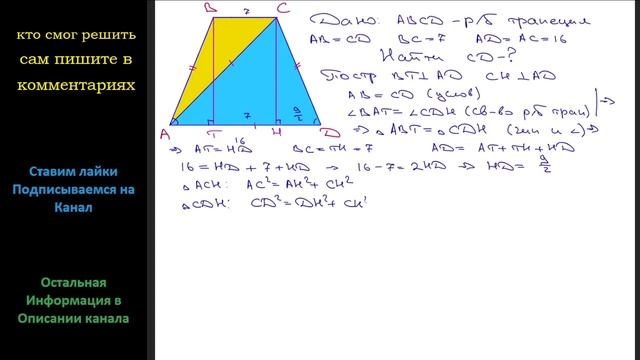 кто смог решить
сам пишите в
комментариях
Ставим лайки
Подписываемся на
Канал
Остальная
Информация в
Описании канала
B 7 C
A T 7 H 9/2 D
16
Дано: ABCD – р/б трапеция
AB = CD BC = 7 AD = AC = 16
Найти CD – ?
Постр BT ⊥ AD CH ⊥ AD
AB = CD (услов)
∠BAT = ∠CDH (св-во р/б трап) | →
→ △ABT = △CDH (гип и ∠) ⇒
⇒ AT = HD BC = TH = 7 AD = AT + TH + HD
16 = HD + 7 + HD → 16 – 7 = 2HD ⇒ HD = 9/2
△ACH: AC² = AH² + CH²
△CDH: CD² = DH² + CH²